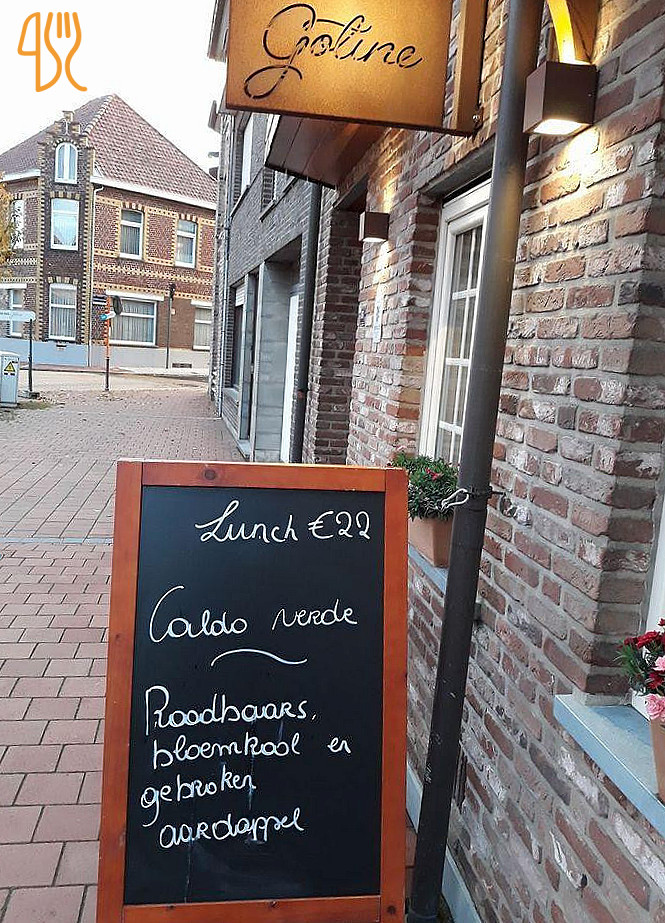 Goline
Lunch €22
Caldo verde
Roodbaars,
bloemkool en
gebroken
aardappel